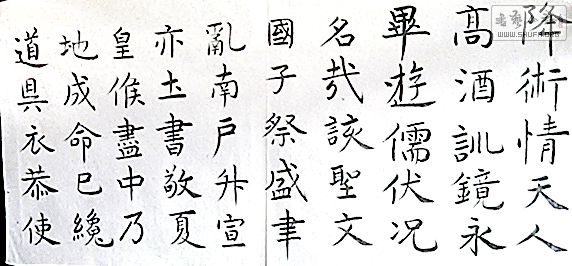 降術情天人
高酒訓鏡永
畢遊儒伏况
名哉該聖文
國子祭盛聿
亂南戶升宣
亦土書敬夏
皇侯盡中乃
地成命巳纔
道具衣恭使